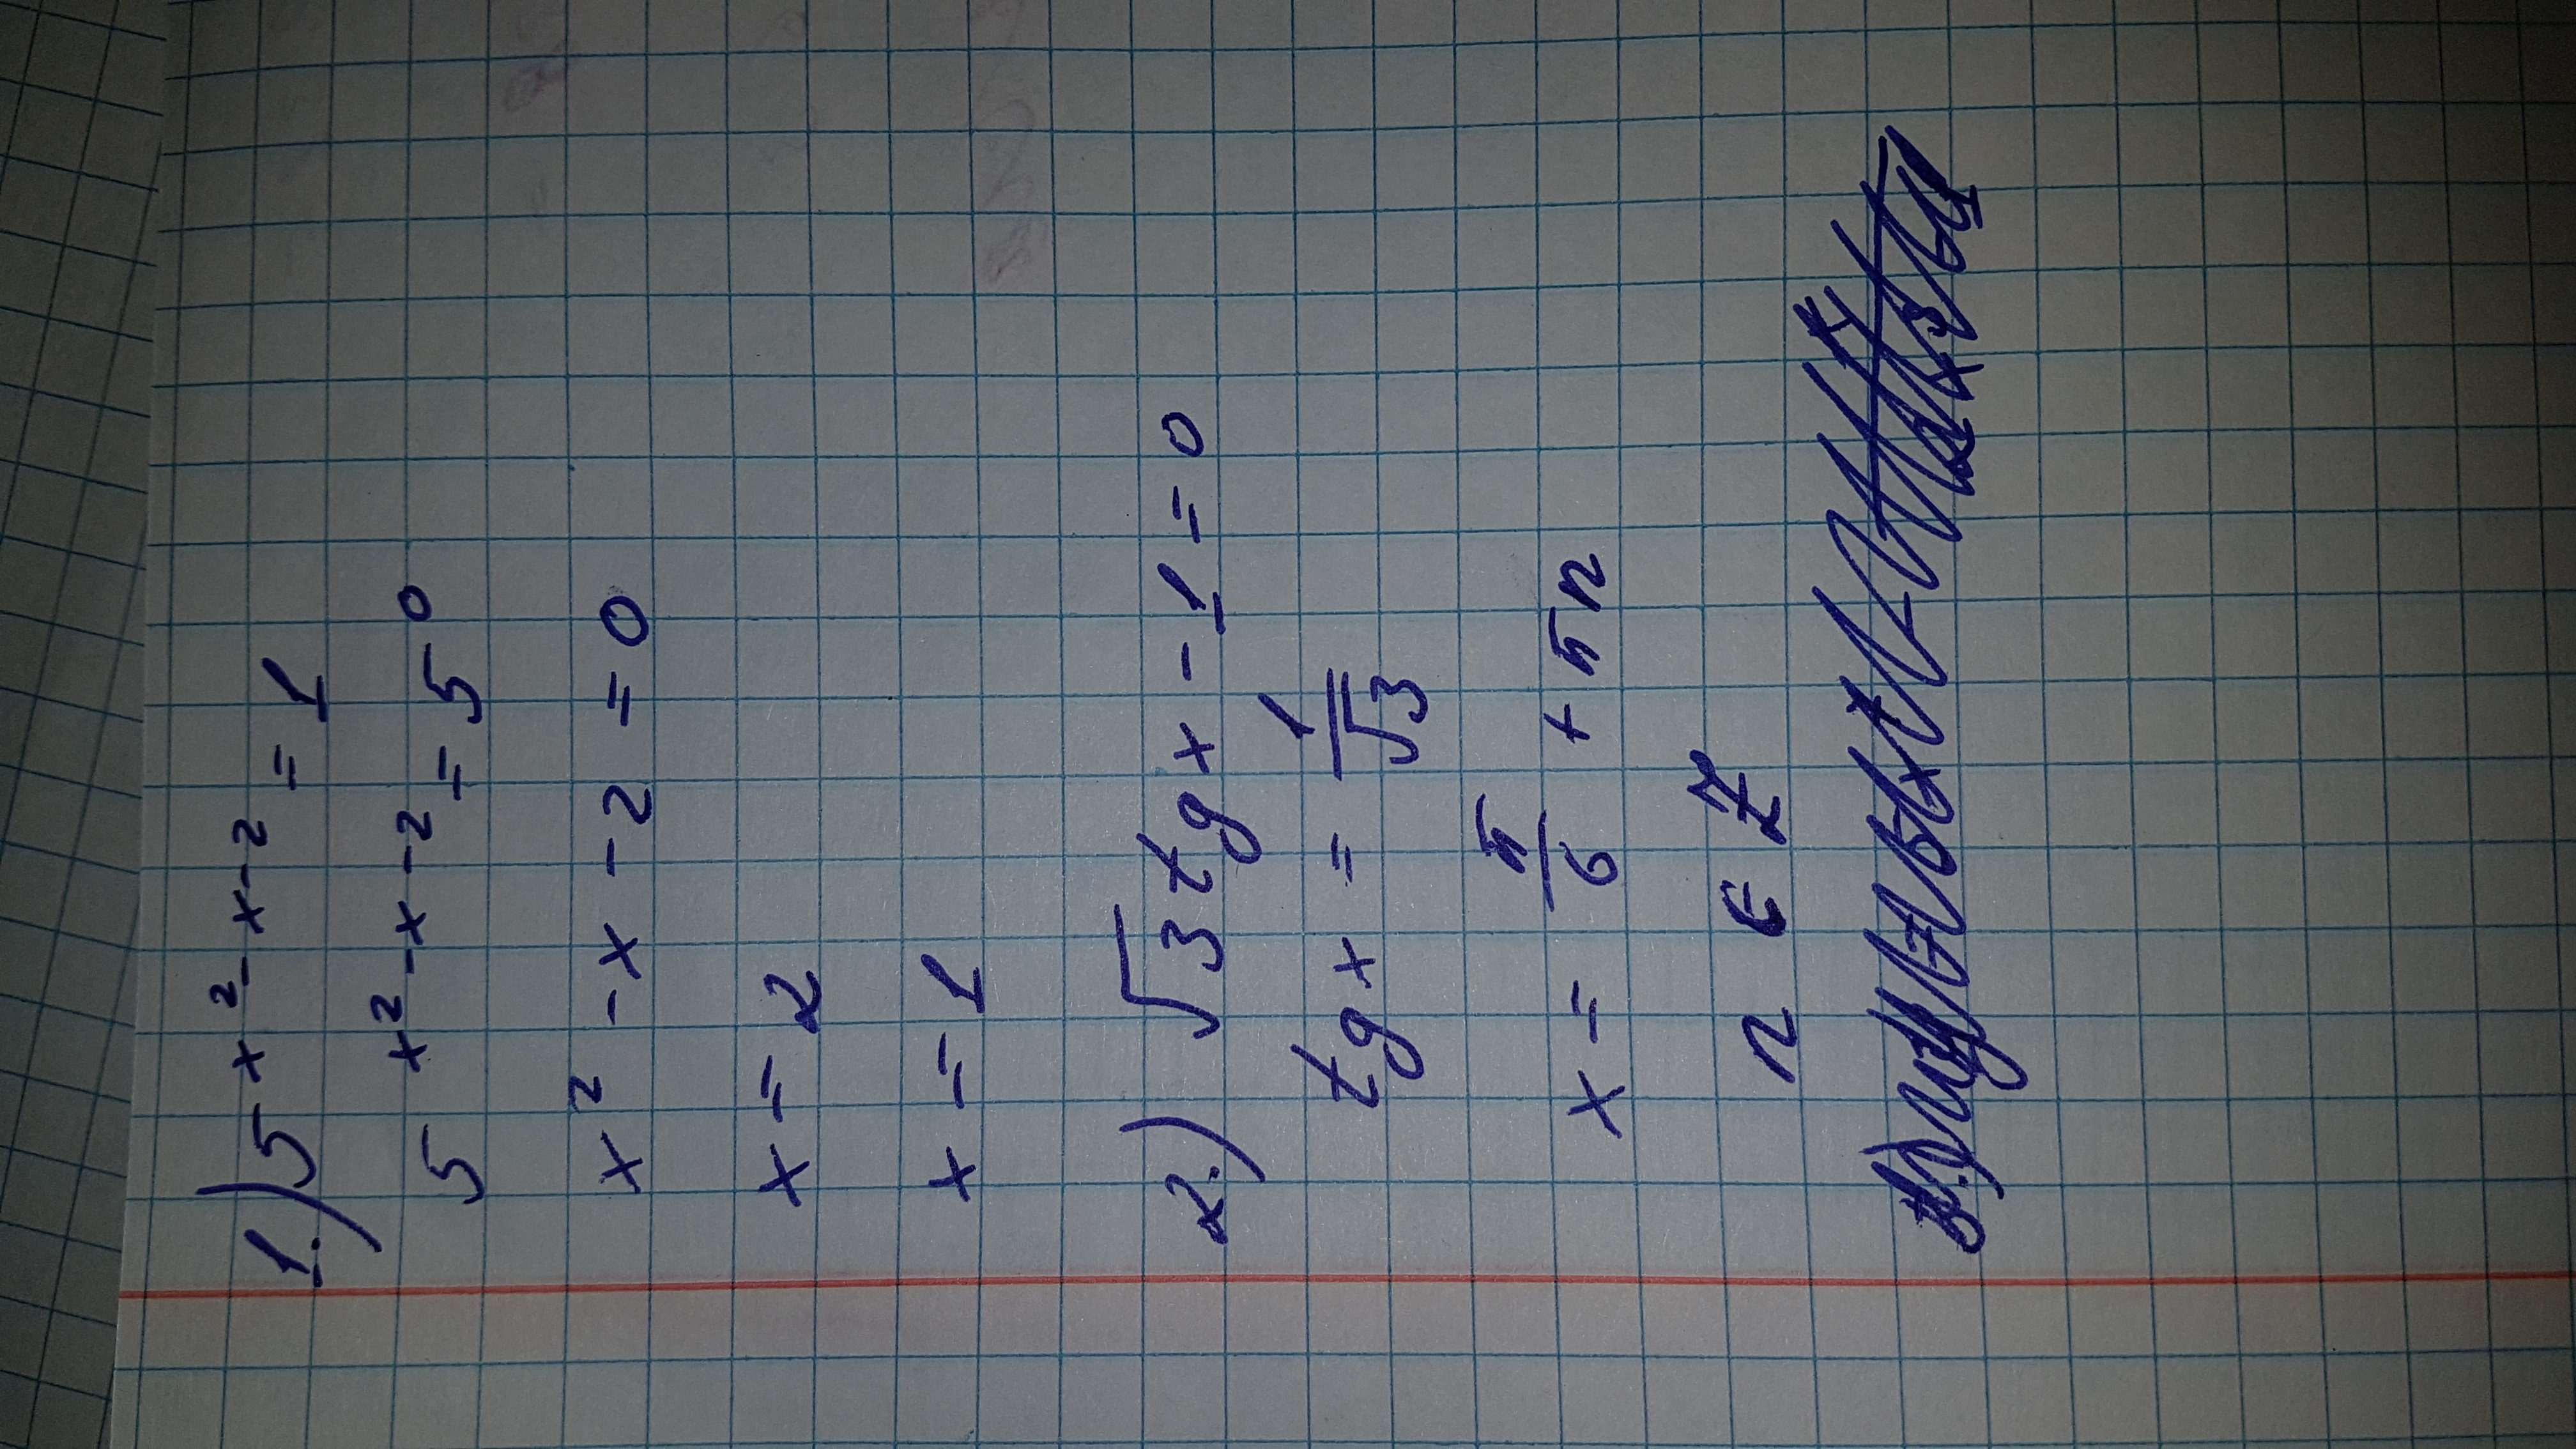 1.) 5^(x²-x-2) = 1
5^(x²-x-2) = 5⁰
x² - x - 2 = 0
x = 2
x = 1
2.) √3 tg x - 1 = 0
tg x = 1/√3
x = π/6 + πn
n ∈ Z